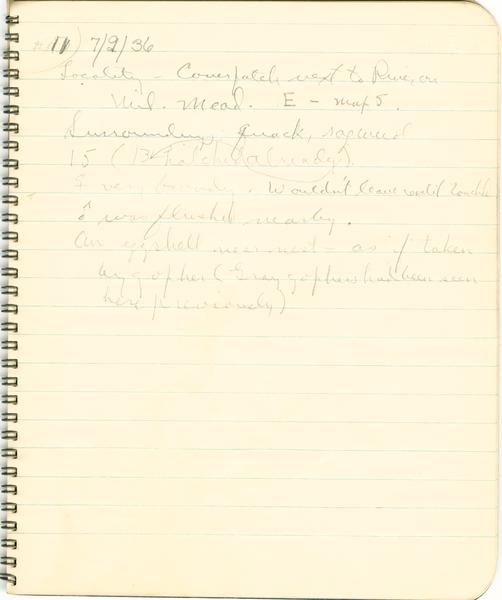 #11) 7/9/36
Locality - Cover patch next to River on
Mid. Mead. E - map 5.
Surrounding: quack, ragweed
15 (13 hatched already).
♀ very broody. Wouldn't leave until touched
♂ was flushed nearby.
An eggshell near nest - as if taken
by gopher (Gray gophers had been seen
here previously)